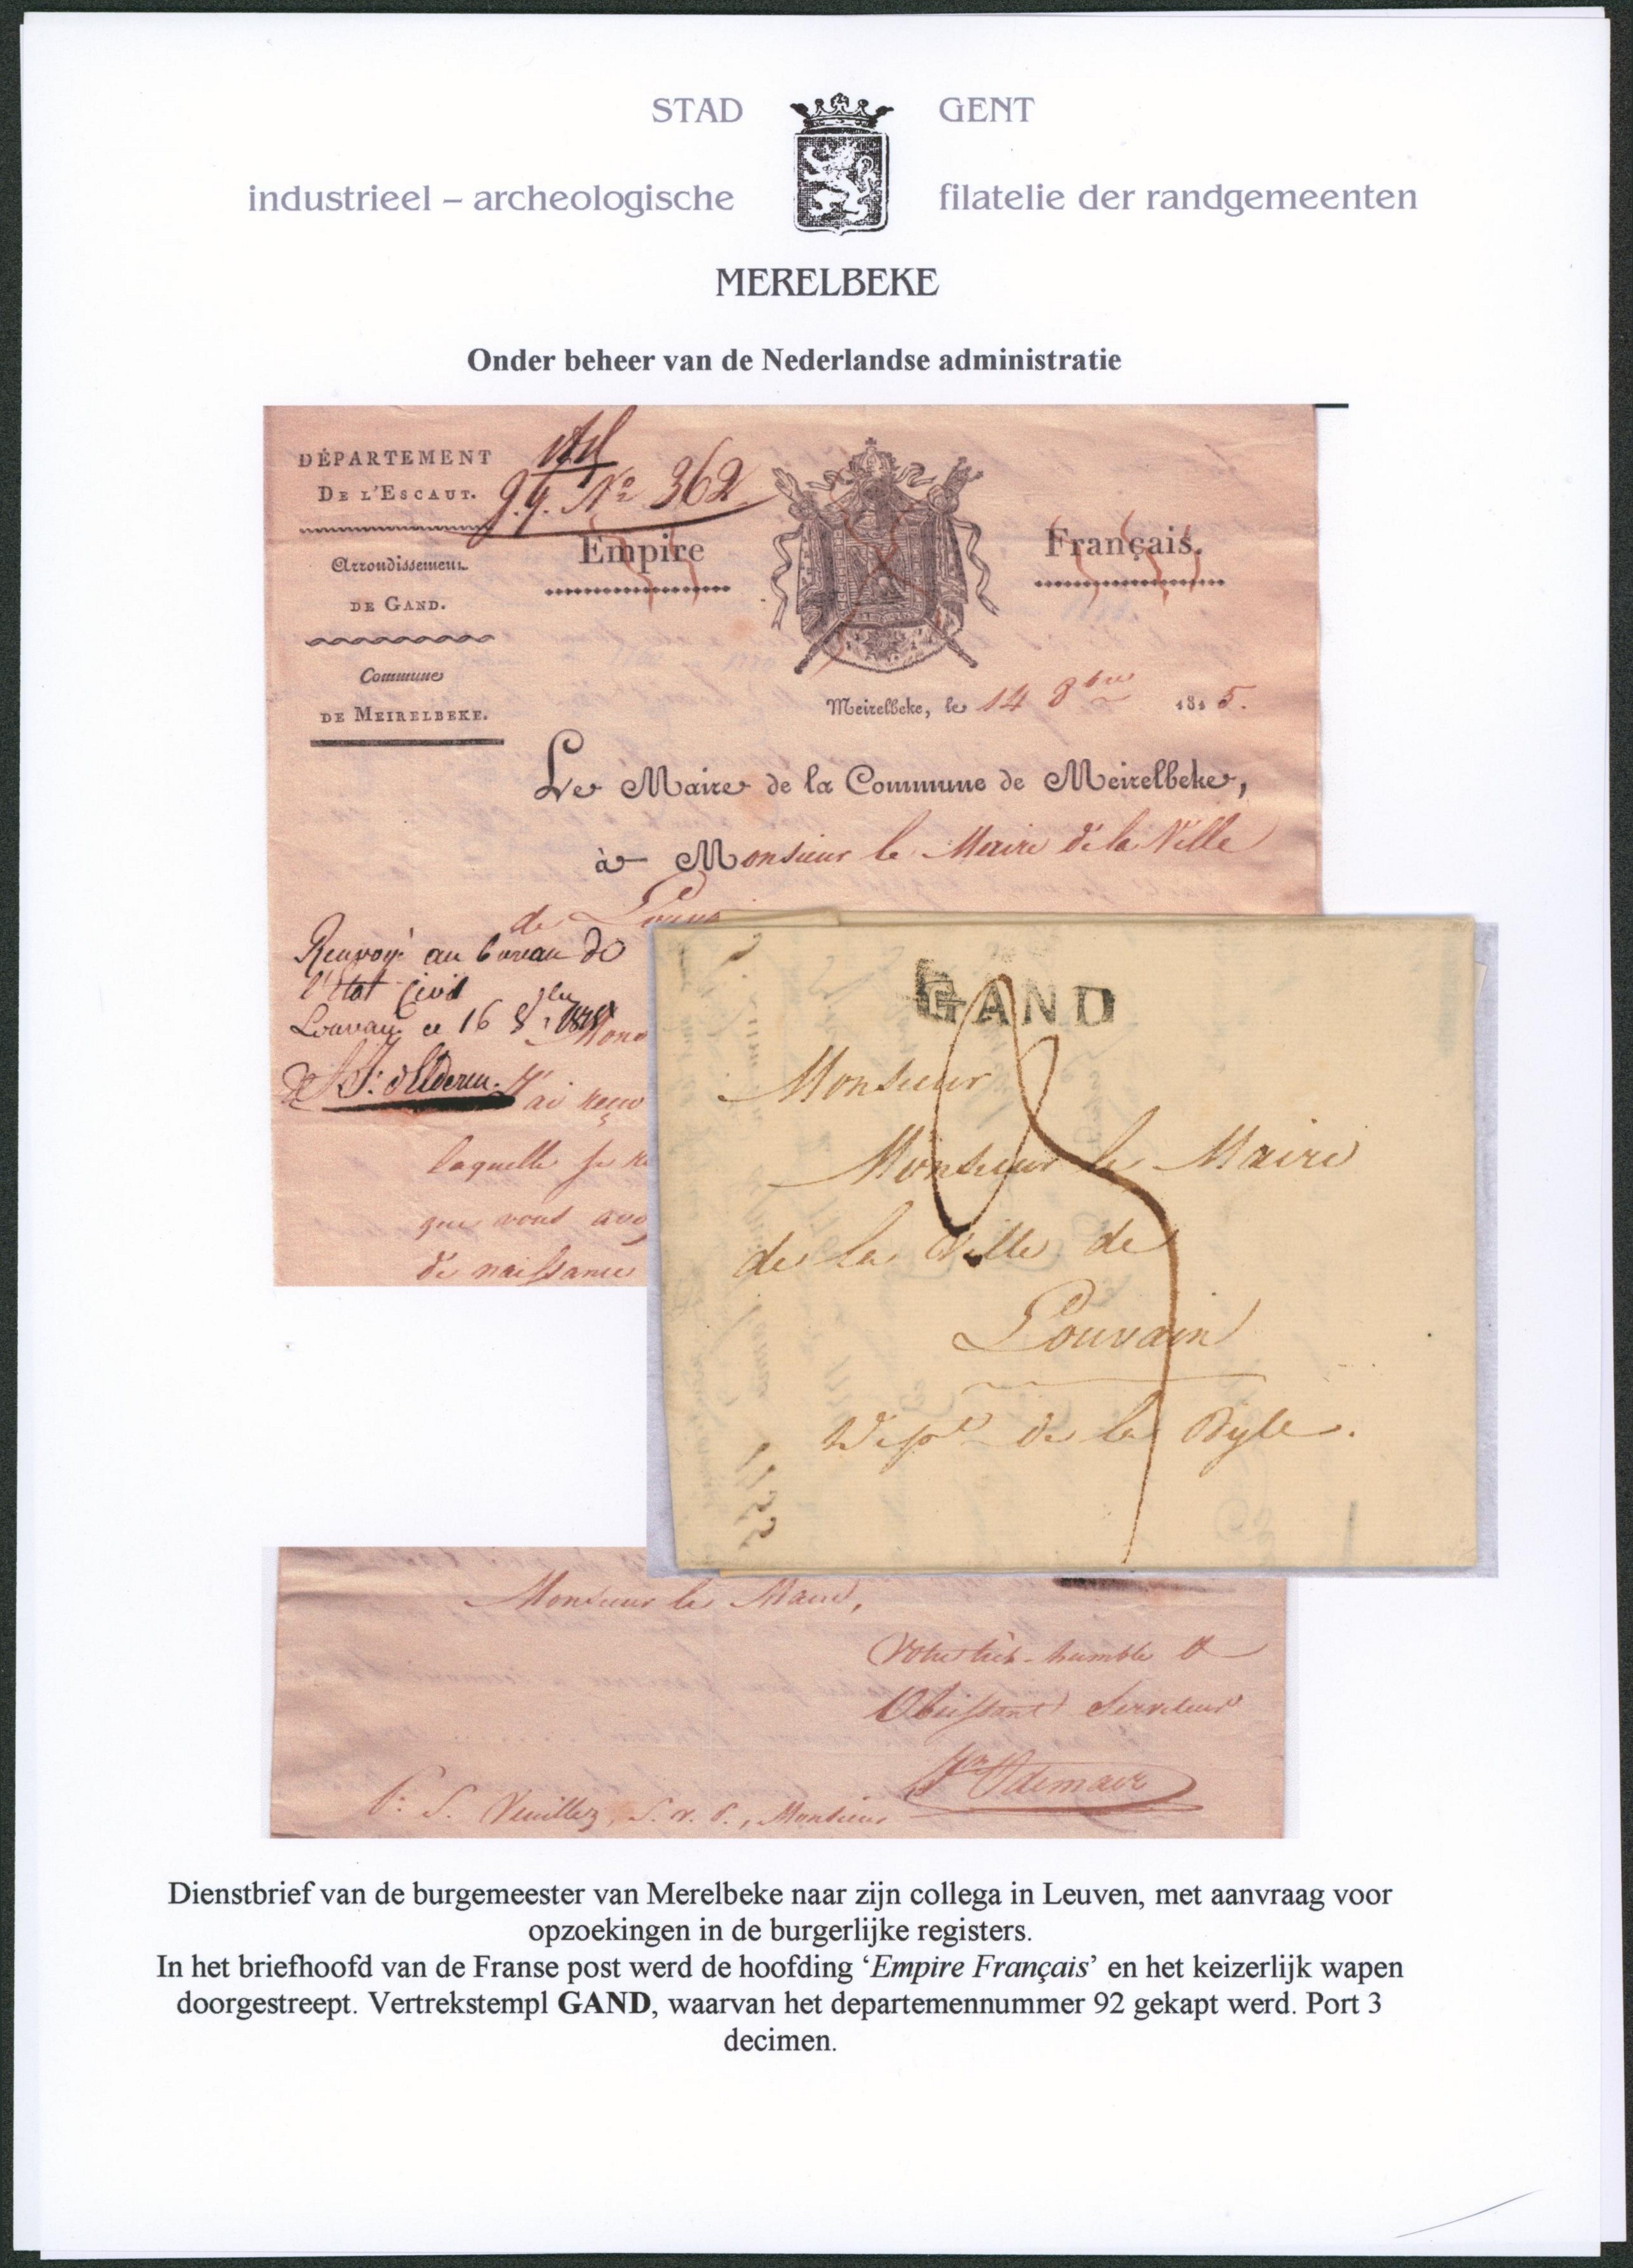 STAD GENT
industrieel – archeologische filatelie der randgemeenten
MERELBEKE
Onder beheer van de Nederlandse administratie
DÉPARTEMENT
DE L'ESCAUT.
N° 362
Empire Français.
Arrondissement
DE GAND.
Commune
DE MEIRELBEKE.
Meirelbeke, le 14 8bre 1815.
Le Maire de la Commune de Meirelbeke,
à Monsieur le Maire de la Ville
de
Renvoyé au bureau de
l'état Civil
Louvain ce 16 8bre 1815
J'ai reçu
laquelle je
que vous
de naissance
GAND
3
Monsieur
Monsieur le Maire
de la Ville de
Louvain
Dept de la Dyle.
Monsieur le Maire,
Votre très-humble &
Obéissant Serviteur
P. S. Veuillez, S. v. P., Monsieur
Dienstbrief van de burgemeester van Merelbeke naar zijn collega in Leuven, met aanvraag voor
opzoekingen in de burgerlijke registers.
In het briefhoofd van de Franse post werd de hoofding ‘Empire Français’ en het keizerlijk wapen
doorgestreept. Vertrekstempl GAND, waarvan het departemennummer 92 gekapt werd. Port 3
decimen.